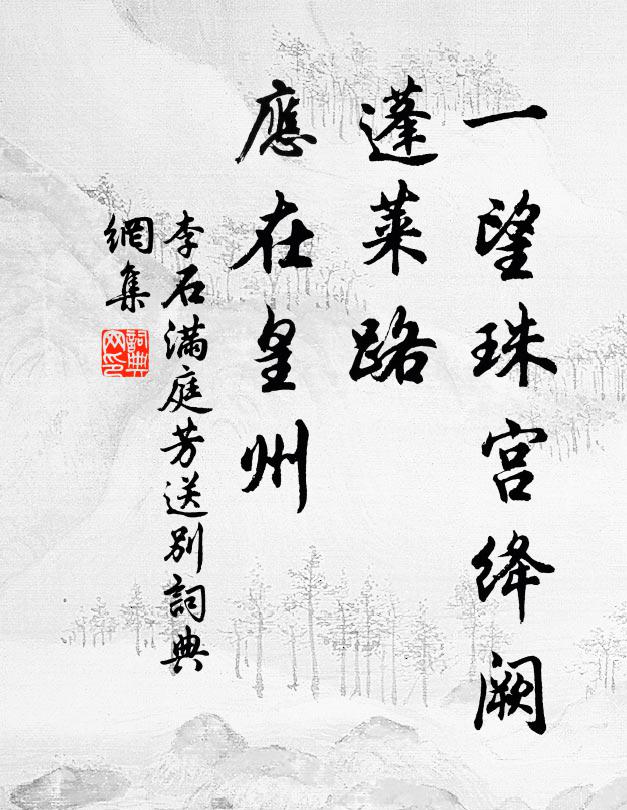 一望珠宫绛阙
蓬莱路
應在皇州
李石满庭芳送别詞典
網集
詞典
网印